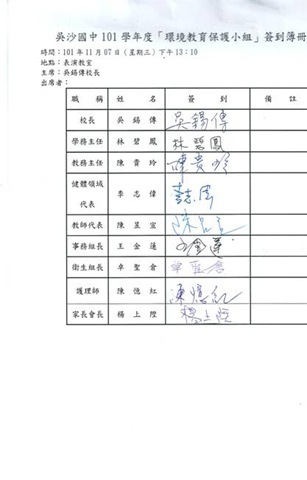 吳沙國中 101 學年度「環境教育保護小組」簽到簿冊
時間：101 年 11 月 07 日（星期三）下午 13：10
地點：表演教室
主席：吳錫傳校長
出席者：
職稱 姓名 簽到 備註
校長 吳錫傳 吳錫傳
學務主任 林碧鳳 林碧鳳
教務主任 陳貴玲 陳貴玲
健體領域
代表 李志偉
教師代表 陳昱宣
事務組長 王金蓮 王金蓮
衛生組長 卓聖倉 卓聖倉
護理師 陳憶紅 陳憶紅
家長會長 楊上陞 楊上陞